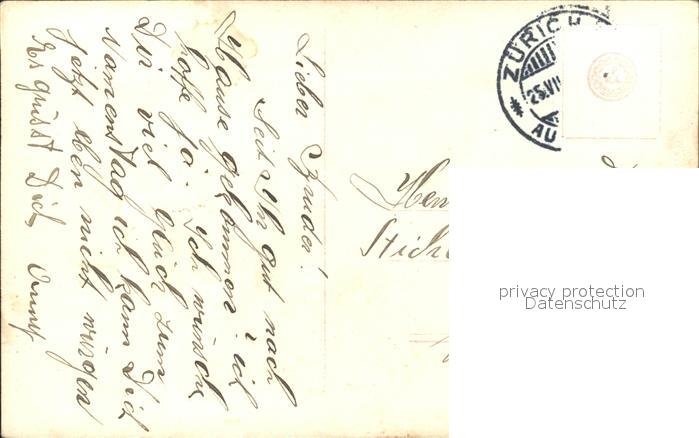 Lieber Bruder!
Seit Ihr gut nach
Hause gekommen? ich
hoffe ja. Ich wünsche
Dir viel Glück zum
Namenstag ich kann Dich
jetzt eben nicht würgen
Es grüsst Dich
ZÜRICH
25.VII
AU
privacy protection
Datenschutz